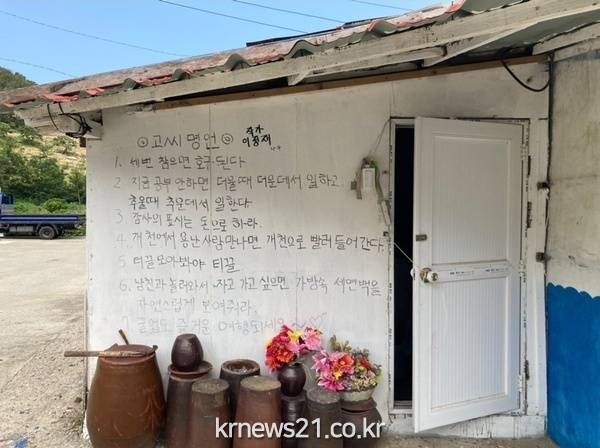 ⊙고씨 명언⊙
작가
이종재
1. 세번 참으면 호구 된다
2 지금 공부 안하면 더울때 더운데서 일하고
추울때 추운데서 일한다.
3 감사의 표시는 돈으로 하라.
4. 개천에서 용난 사람만나면 개천으로 빨려 들어 간다
5 티끌모아봐야 티끌
6 남친과 놀러와서 자고 가고 싶으면 가방속 새연백을
자연스럽게 보여줘라.
7. 즐겁고 즐거운 여행되세요~♡
krnews21.co.kr